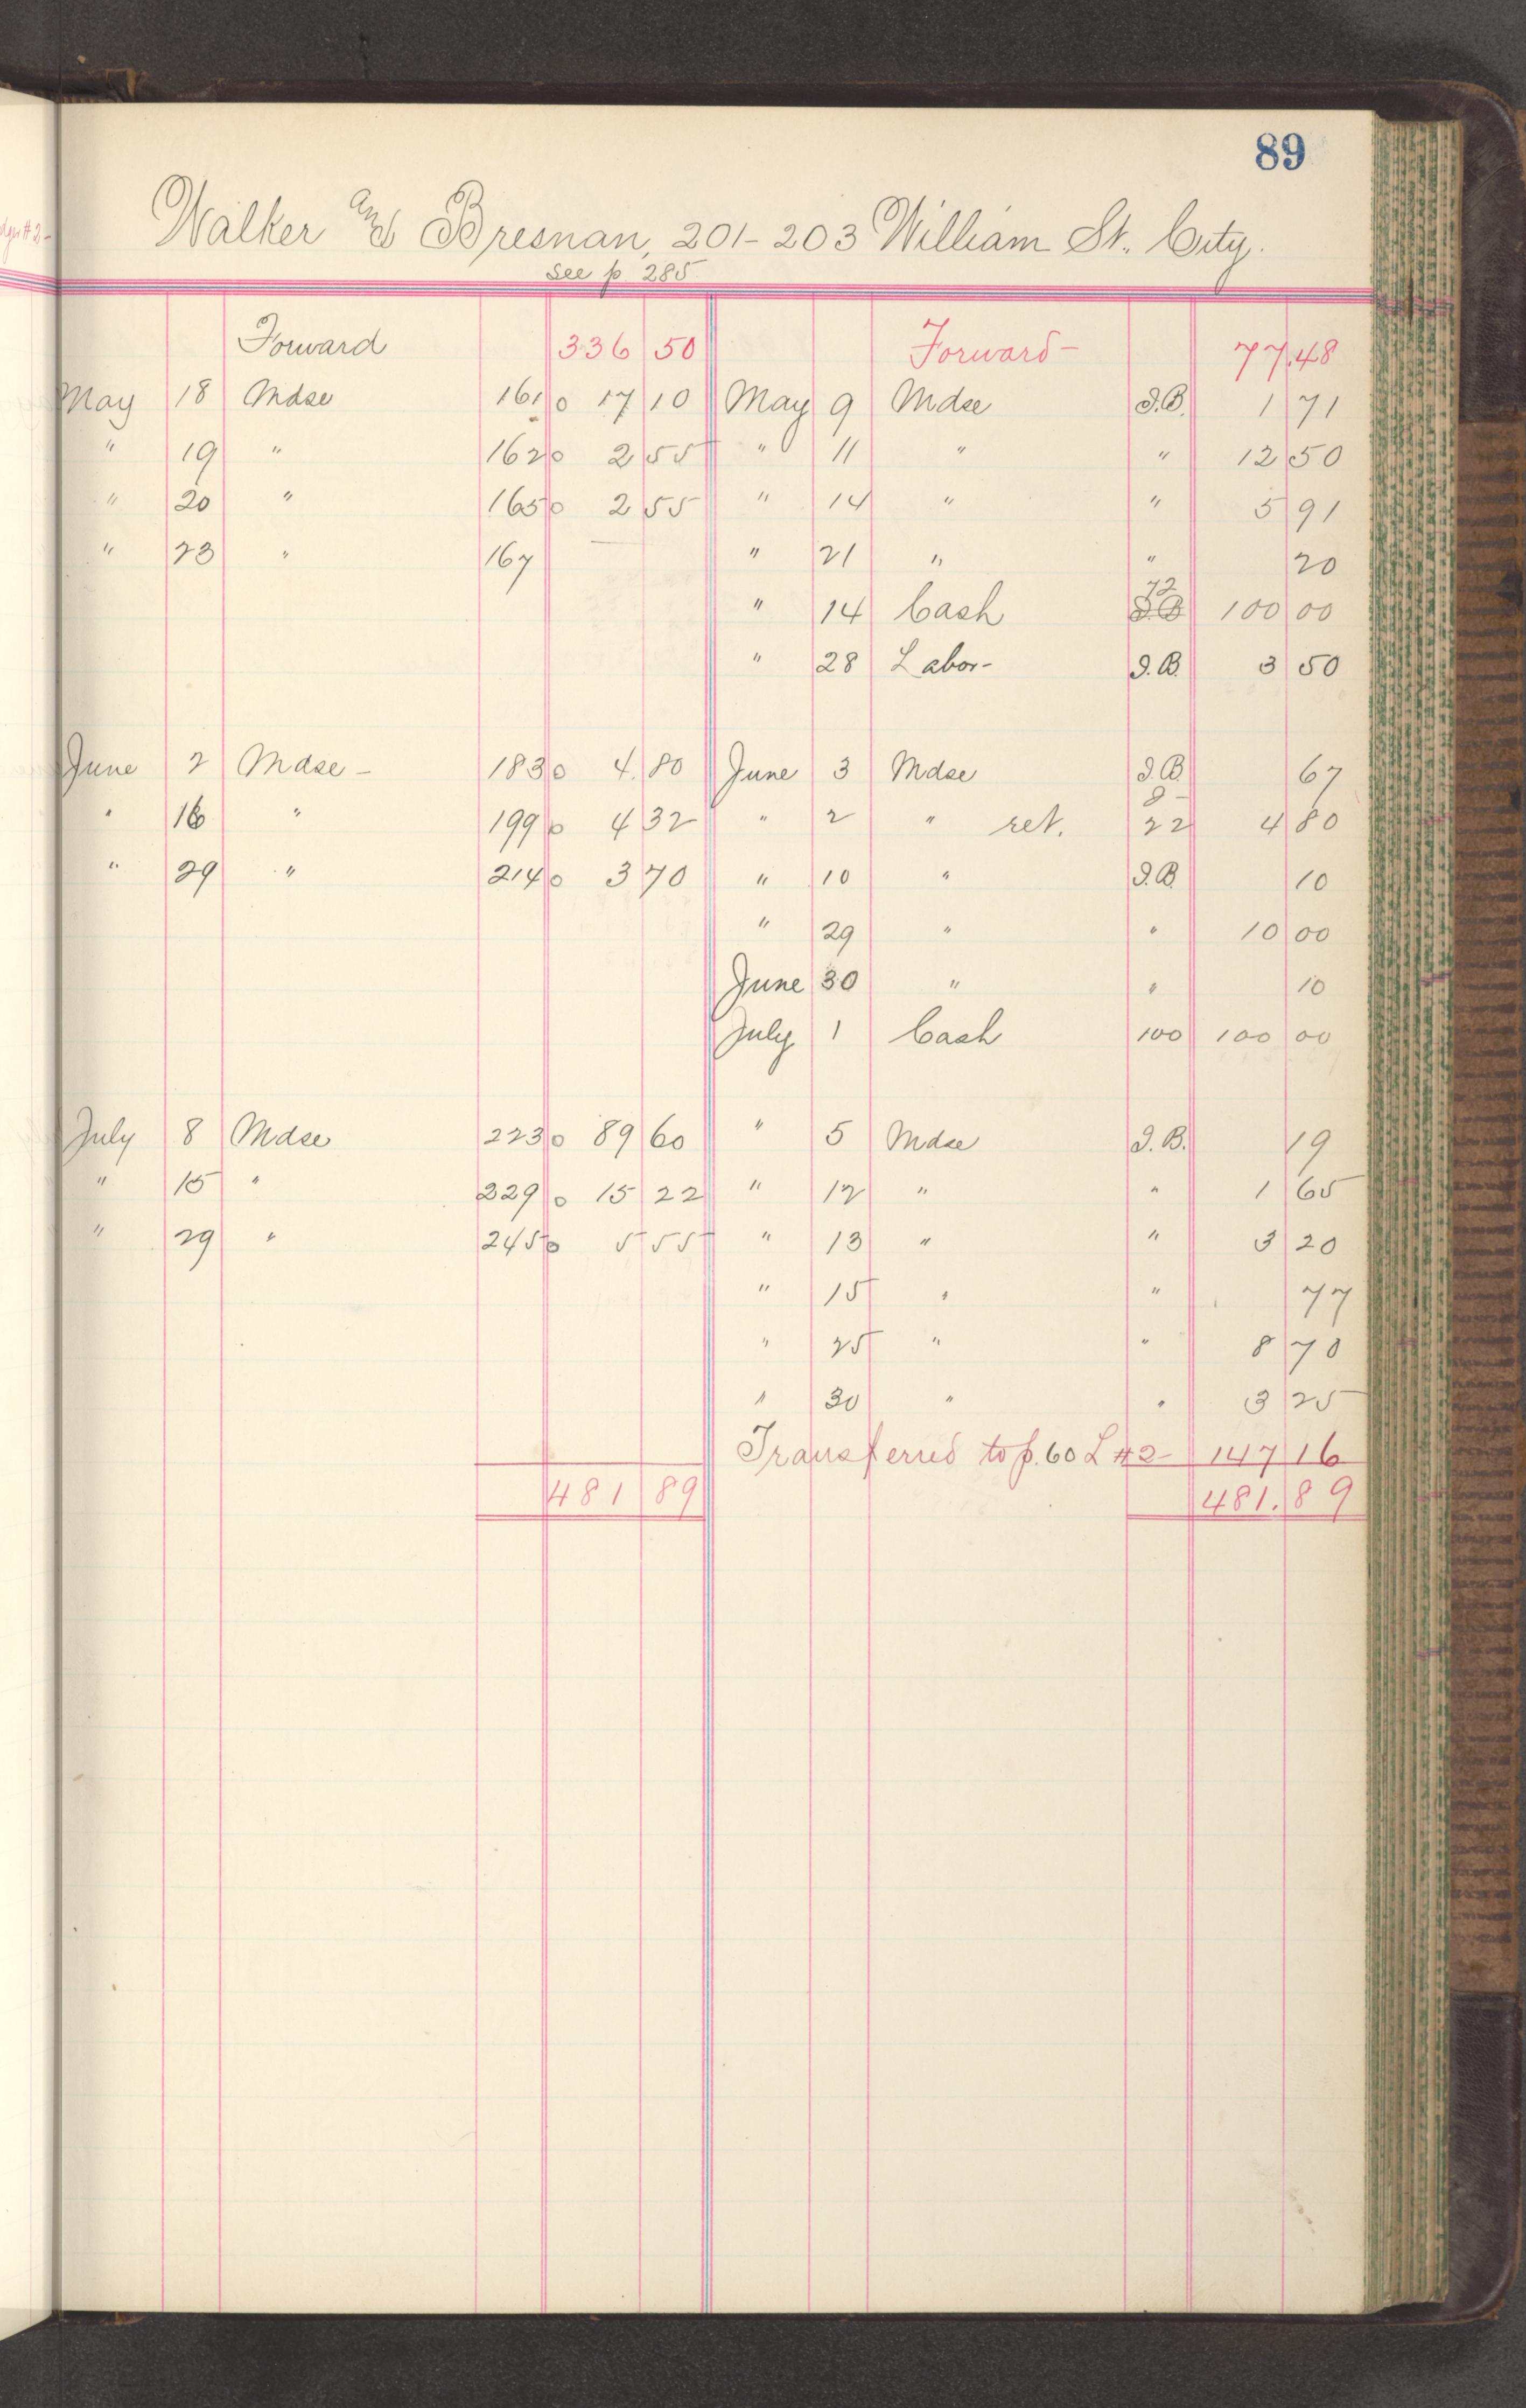 89
Walker and Bresnan, 201-203 William St. City.
see p. 285
Forward 336 50 Forward- 77.48
May 18 Mdse 161 0 17 10 May 9 Mdse I.B. 1 71
" 19 " 162 0 2 55 " 11 " " 12 50
" 20 " 165 0 2 55 " 14 " " 5 91
" 23 " 167 — " 21 " " 20
" 14 Cash 72 I.B. 100 00
" 28 Labor- I.B. 3 50
June 2 Mdse - 183 0 4.80 June 3 Mdse I.B. 67
" 16 " 199 0 4 32 " 2 " ret. 22 4 80
" 29 " 214 0 3 70 " 10 " I.B. 10
" 29 " " 10 00
June 30 " " 10
July 1 Cash 100 100 00
July 8 Mdse 223 0 89 60 " 5 Mdse I.B. 19
" 15 " 229 0 15 22 " 12 " " 1 65
" 29 " 245 0 5 55 " 13 " " 3 20
" 15 " " 77
" 25 " " 8 70
" 30 " " 3 25
Transferred to p. 60 L #2- 147 16
481 89 481.89